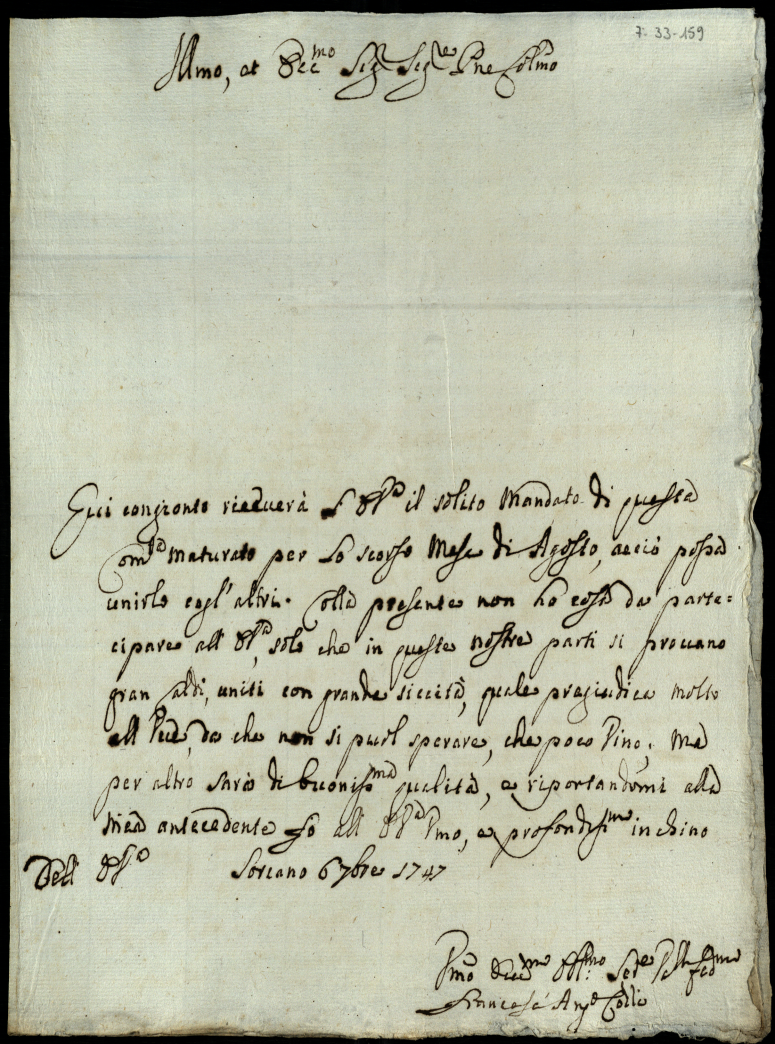 7-33-159
Illmo, et Eccmo Sigr Sigre Pne Colmo
Qui congionto riceverà l'E V'ra il solito Mandato di questa
Comtà maturato per lo scorso Mese di Agosto, acciò possa
unirlo cogl'altri. Colla presente non ho cosa da parte=
cipare all'E V'ra, solo che in queste nostre parti si provano
gran caldi, uniti con grande siccità, quale pregiudica molto
all' Uve, da che non si puol sperare, che poco Vino, ma
per altro sarà di buonissma qualità, e riportandomi alla
mia antecedente fo all' E V'ra Umo, e profondissmo inchino
Dell' E V'ra Soriano 6 7bre 1747
Umo Devmo Obblmo Serre
Francesco Ango